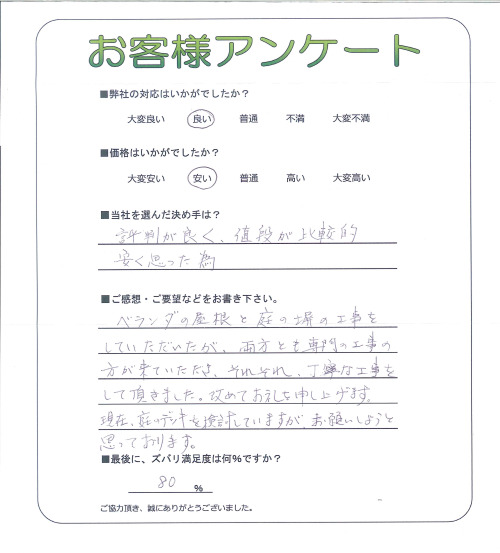 お客様アンケート
■弊社の対応はいかがでしたか？
大変良い 良い 普通 不満 大変不満
■価格はいかがでしたか？
大変安い 安い 普通 高い 大変高い
■当社を選んだ決め手は？
評判が良く、値段が比較的
安く思った為
■ご感想・ご要望などをお書き下さい。
ベランダの屋根と庭の塀の工事を
していただいたが、両方とも専門の工事の
方が来ていただき、それぞれ、丁寧な工事を
して頂きました。改めてお礼を申し上げます。
現在、庭のデッキを検討していますが、お願いしようと
思っております。
■最後に、ズバリ満足度は何%ですか？
80 %
ご協力頂き、誠にありがとうございました。